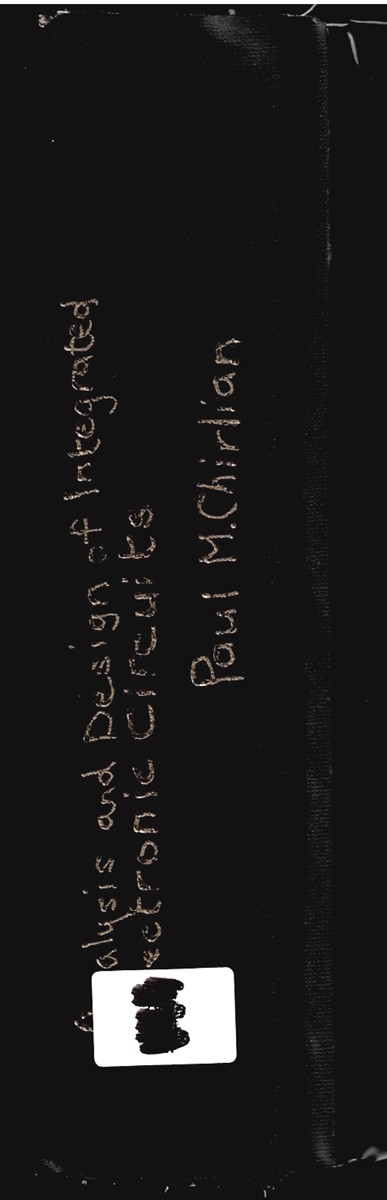 alysis and Design of Integrated
ectronic Circuits
Paul M.Chirlian